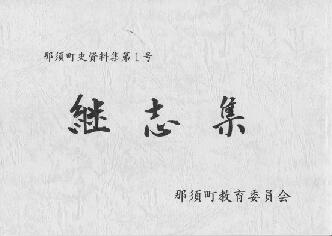 那須町史資料集第1号
継志集
那須町教育委員会